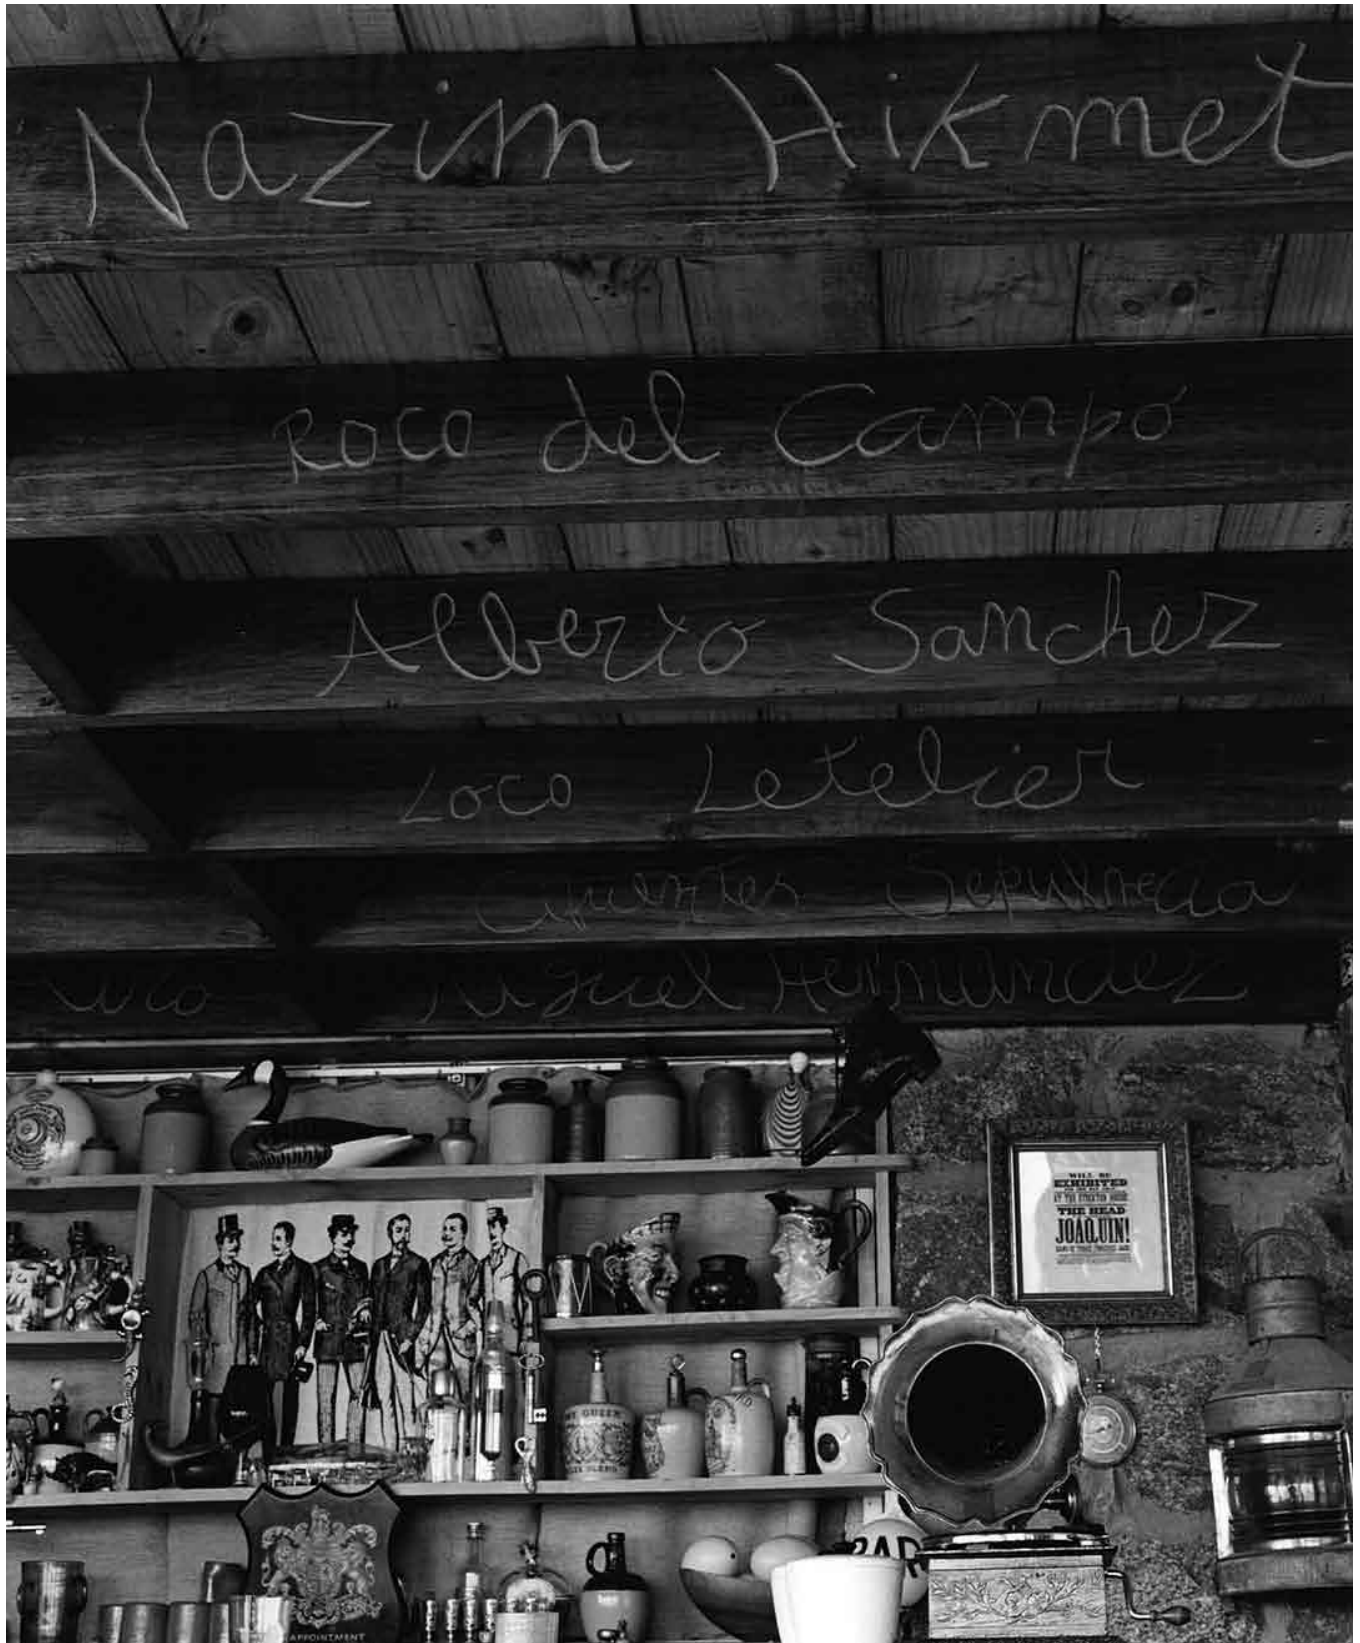 Nazim Hikmet
Roco del Campó
Alberto Sanchez
Loco Letelier
Cifuentes Sepulveda
Miguel Hernandez
WILL BE
EXHIBITED
AT THE STOCKTON HOUSE
THE HEAD
JOAQUIN!
QUEEN
BAR
APPOINTMENT